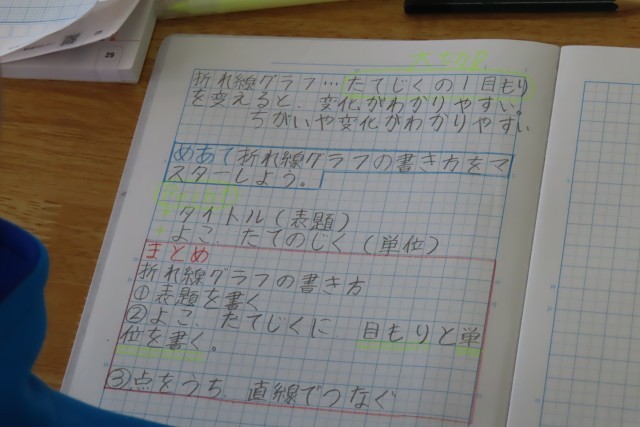 折れ線グラフ…たてじくの1目もり
を変えると、変化がわかりやすい。
ちがいや変化がわかりやすい
めあて折れ線グラフの書き方をマ
スターしよう。
タイトル(表題)
よこ、たてのじく(単位)
まとめ
折れ線グラフの書き方
①表題を書く
②よこ、たてじくに 目もりと単
位を書く。
③点をうち、直線でつなぐ
29